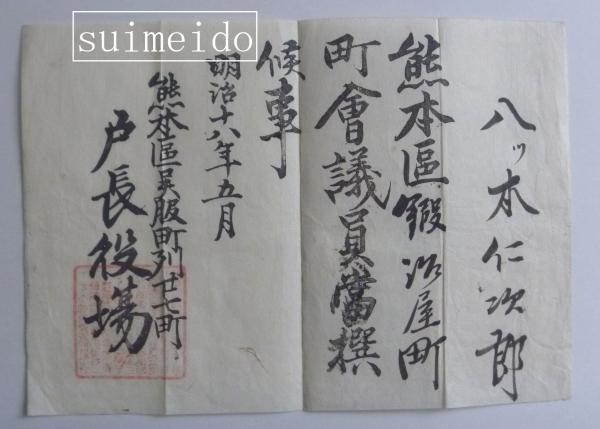 suimeido
八ッ木仁次郎
熊本區鍛冶屋町
町會議員當撰
候事
明治十八年五月
熊本區呉服町列廿七町
戸長役場